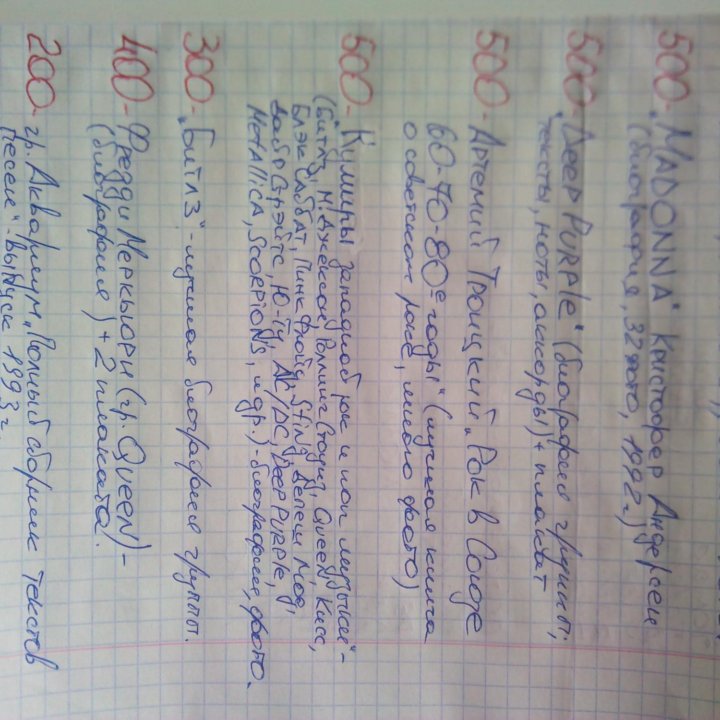 500- „MADONNA" Кристофер Андерсен
(биография, 32 фото, 1992г.)
500- „Deep PURPLE" (биография группы,
тексты, ноты, аккорды) + плакат
500- Артемий Троицкий „Рок в Союзе
60-70-80е годы" (лучшая книга
о советском роке, много фото)
500- „Кумиры западной рок и поп музыки"-
(Битлз, М. Джексон, Роллинг Стоунз, Queen, Кисс,
Блэк Саббат, Пинк Флойд, Sting, Депеш Мод,
Дайр Стрэйтс, Ю-Ту, AC/DC, Deep PURPLE,
Metallica, Scorpions, и др.)-биография, фото.
300- „Битлз"-лучшая биография группы.
400- Фредди Меркьюри (гр. Queen)-
(биография) + 2 плаката.
200- гр. Аквариум „Полный сборник текстов
песен"-выпуск 1993г.